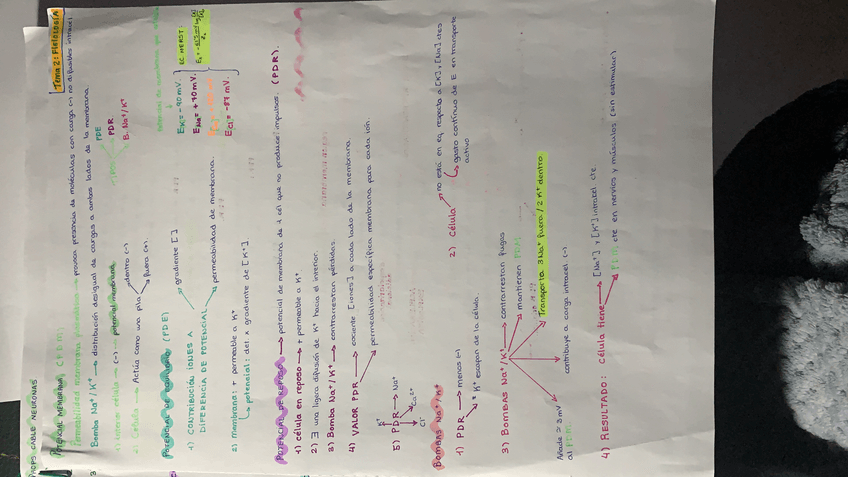 PROPS CABLE NEURONAS
Tema 2: FISIOLOGÍA
POTENCIAL MEMBRANA (PDM)
Permeabilidad membrana → provoca presencia de moléculas con carga (-) no difusibles intracel.
Bomba Na⁺/K⁺ → distribución desigual de cargas a ambos lados de la membrana.
1) Interior célula → (-) → potencial membrana
PDE
PDR
B. Na⁺/K⁺
2) Célula → Actúa como una pila
dentro (-)
fuera (+)
POTENCIAL DE (PDE)
1) CONTRIBUCIÓN IONES A DIFERENCIA DE POTENCIAL
gradiente [ ]
permeabilidad de membrana.
EK = -90 mV.
ENa = +70 mV.
ECl = -87 mV.
EC NERST:
2) Membrana: + permeable a K⁺
potencial: det x gradiente de [K⁺]
POTENCIAL DE REPOSO → potencial de membrana de λ en que no produce impulsos. (PDR).
1) célula en reposo → + permeable a K⁺
2) ∃ una ligera difusión de K⁺ hacia el interior.
3) Bomba Na⁺/K⁺ → contrarrestan pérdidas.
4) VALOR PDR
cociente [iones] a cada lado de la membrana.
permeabilidad específica membrana para cada ión.
5) PDR → Na⁺
K⁺
Ca²⁺
Cl⁻
BOMBAS Na⁺/K⁺
1) PDR → menos (-)
K⁺ escapan de la célula.
2) Célula
no está en eq. respecto a [K] y [Na] ctes
gasto contínuo de E en transporte activo
3) BOMBAS Na⁺/K⁺
contrarrestan fugas
mantienen P.D.M.
Transporta 3 Na⁺ fuera / 2 K⁺ dentro.
contribuye a carga intracel (-)
Añade ≈ 3 mV al P.D.M.
4) RESULTADO: Célula tiene
[Na⁺] y [K⁺] intracel cte.
P.D.M. cte en nervios y músculos (sin estimular)